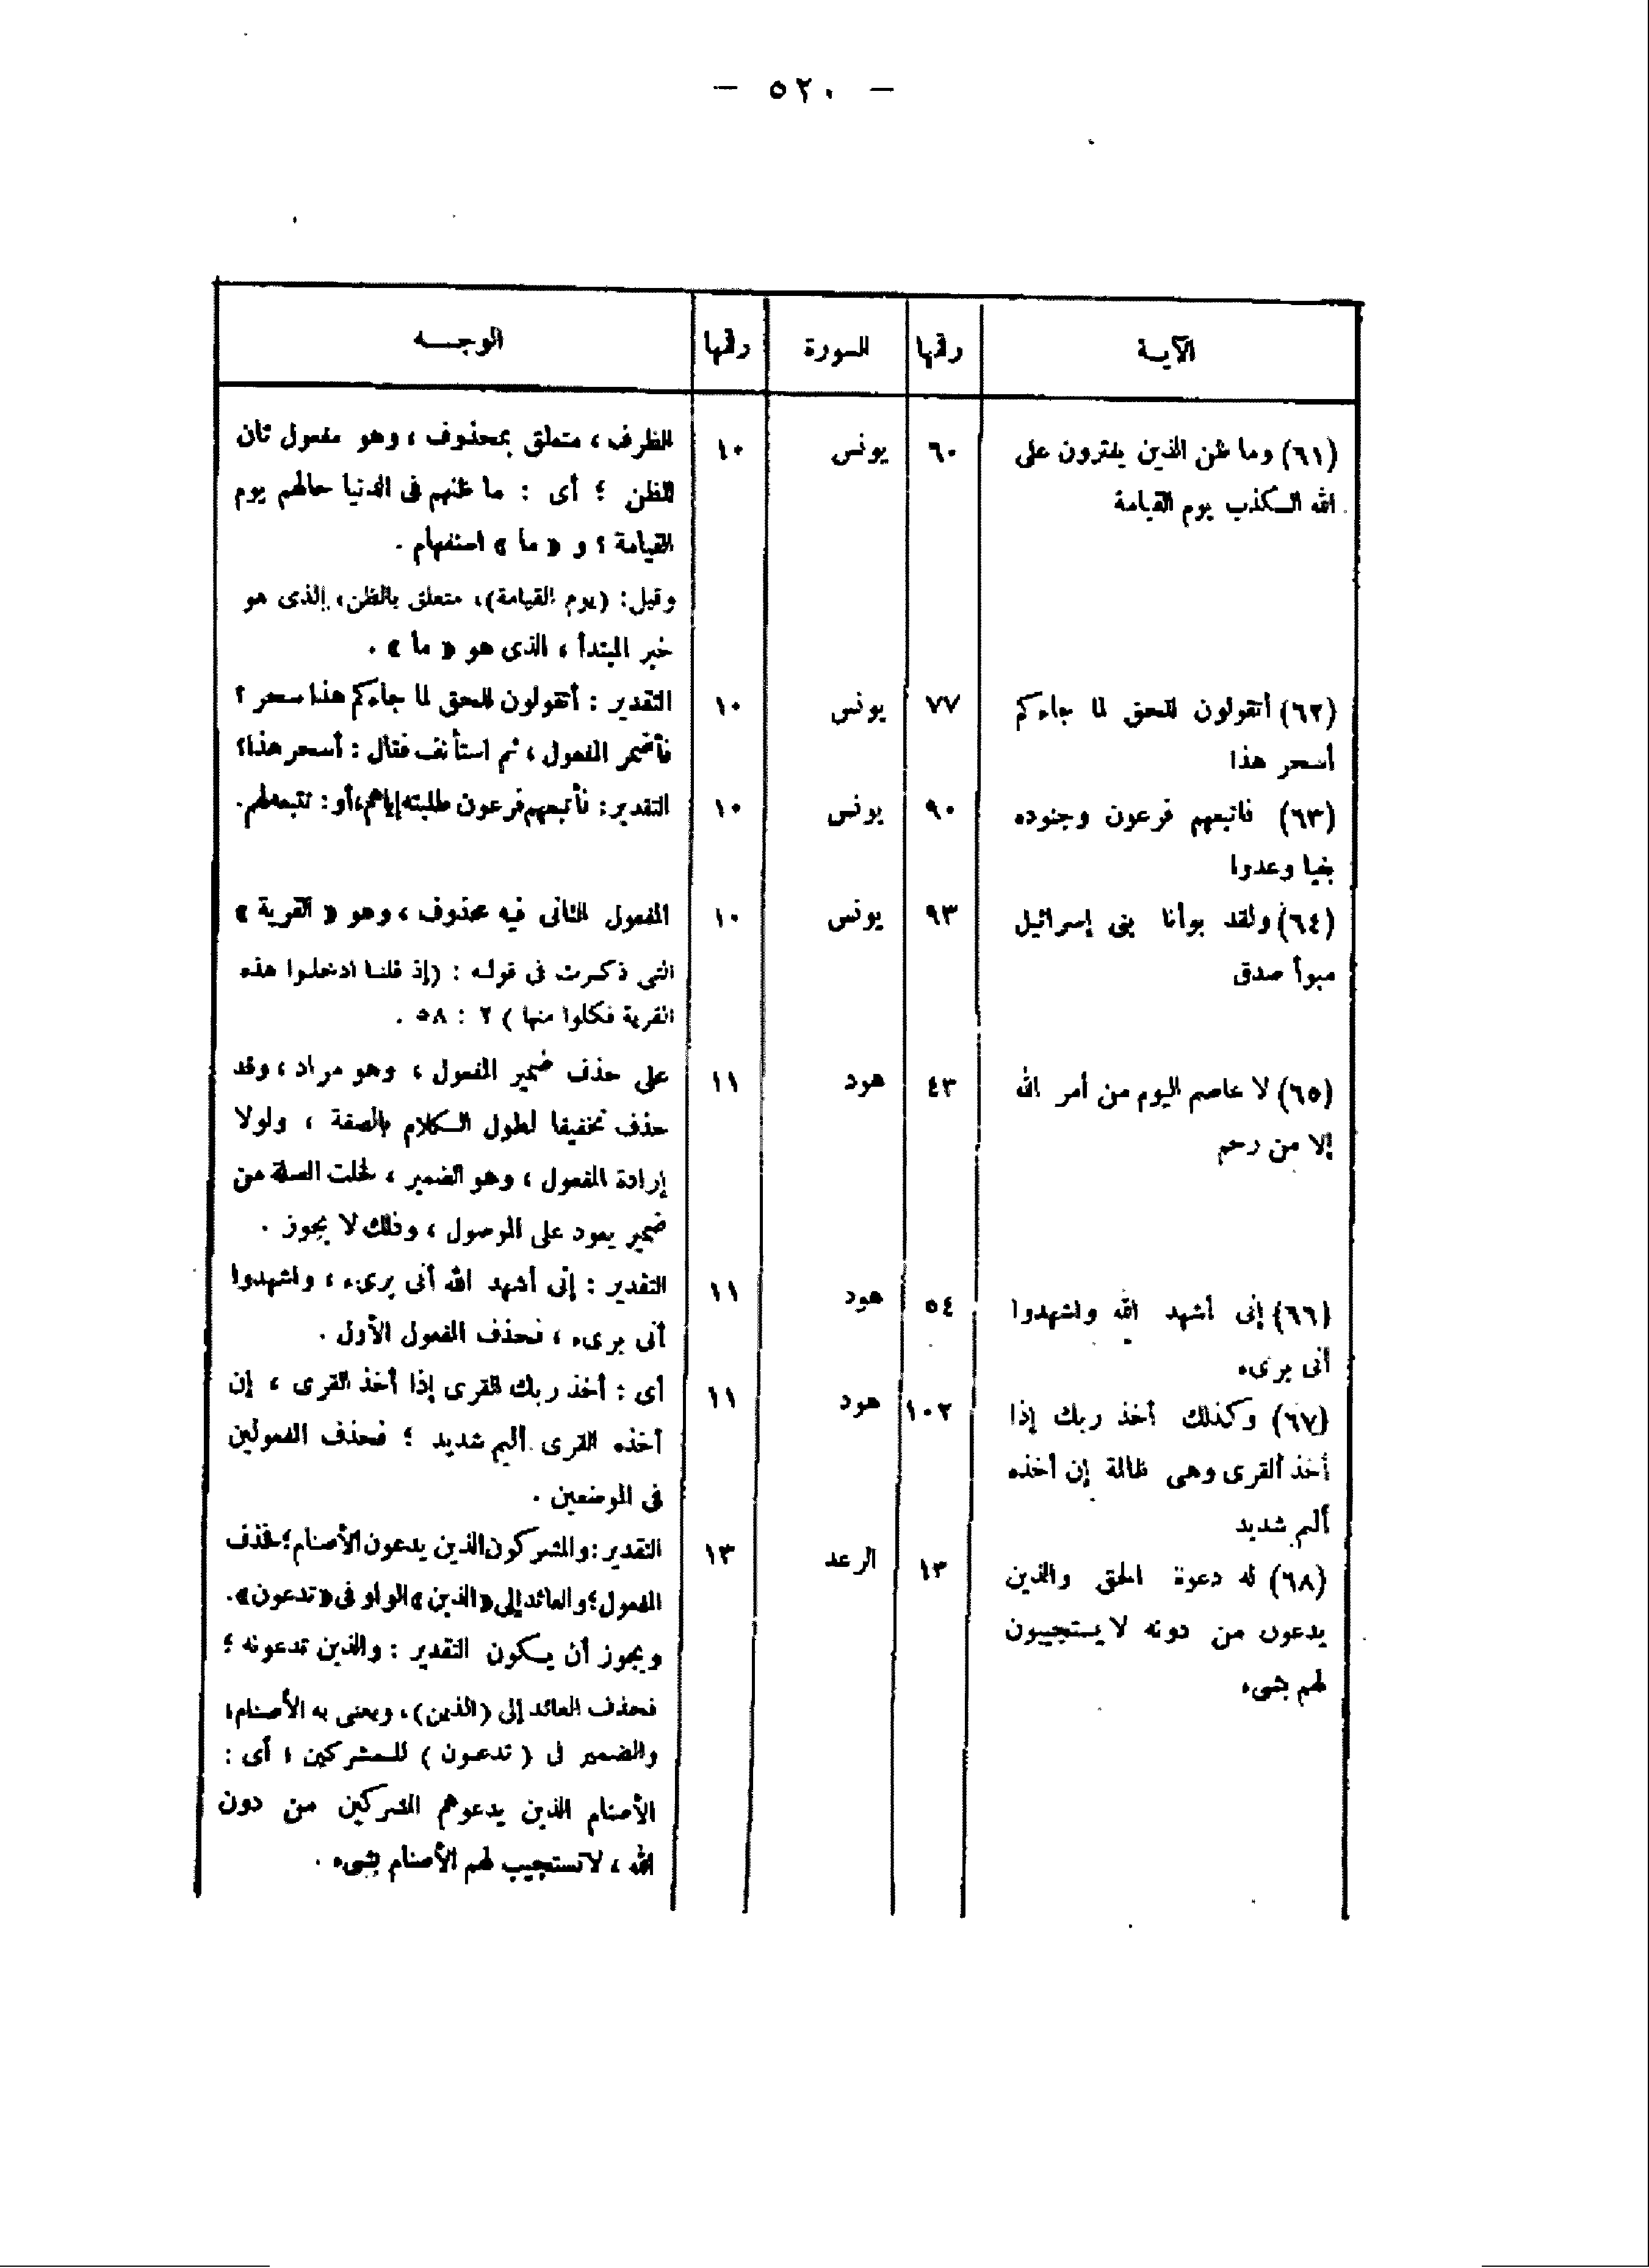 — ٥٢٠ —
الآيــة رقمها السورة رقمها الوجـــه
(٦١) وما ظن الذين يفترون على ٦٠ يونس ١٠ الظرف ، متعلق بمحذوف ، وهو مفعول ثان
الله الـكذب يوم القيامة للظن ؛ أى : ما ظنهم فى الدنيا حالهم يوم
القيامة ؟ و « ما » استفهام .
وقيل: (يوم القيامة)، متعلق بالظن، الذى هو
خبر المبتدأ ، الذى هو « ما » .
(٦٢) أتقولون للحق لما جاءكم ٧٧ يونس ١٠ التقدير : أتقولون للحق لما جاءكم هذا سحر ؟
أسحر هذا فأضمر المفعول ، ثم استأنف فقال : أسحر هذا؟
(٦٣) فاتبعهم فرعون وجنوده ٩٠ يونس ١٠ التقدير: فأتبعهم فرعون طلبته إياهم، أو: تتبعه لهم.
بغيا وعدوا
(٦٤) ولقد بوأنا بنى إسرائيل ٩٣ يونس ١٠ المفعول الثانى فيه محذوف ، وهو « القرية »
مبوأ صدق التى ذكـرت فى قولـه : (إذ قلنـا ادخلـوا هذه
القرية فكلوا منها ) ٢ : ٥٨ .
(٦٥) لا عاصم اليوم من أمر الله ٤٣ هود ١١ على حذف ضمير المفعول ، وهو مراد ، وقد
إلا من رحم حذف تخفيفا لطول الـكلام بالصفة ، ولولا
إرادة المفعول ، وهو الضمير ، لخلت الصلة من
ضمير يعود على الموصول ، وذلك لا يجوز .
(٦٦) إنى أشهد الله واشهدوا ٥٤ هود ١١ التقدير : إنى أشهد الله أنى برىء ، واشهدوا
أنى برىء أنى برىء ، فحذف المفعول الأول .
(٦٧) وكذلك أخذ ربك إذا ١٠٢ هود ١١ أى : أخذ ربك القرى إذا أخذ القرى ، إن
أخذ القرى وهى ظالمة إن أخذه أخذه القرى أليم شديد ؛ فحذف المفعولين
أليم شديد فى الموضعين .
(٦٨) له دعوة الحق والذين ١٣ الرعد ١٣ التقدير: والمشركون الذين يدعون الأصنام؛ فحذف
يدعون من دونه لا يستجيبون المفعول؛ والعائد إلى « الذين » الواو فى « تدعون ».
لهم بشىء ويجوز أن يـكون التقدير : والذين تدعونه ؛
فحذف العائد إلى (الذين)، ويعنى به الأصنام،
والضمير فى ( تدعـون ) للـمشركين ، أى :
الأصنام الذين يدعوهم المشركين من دون
الله ، لا تستجيب لهم الأصنام بشىء .